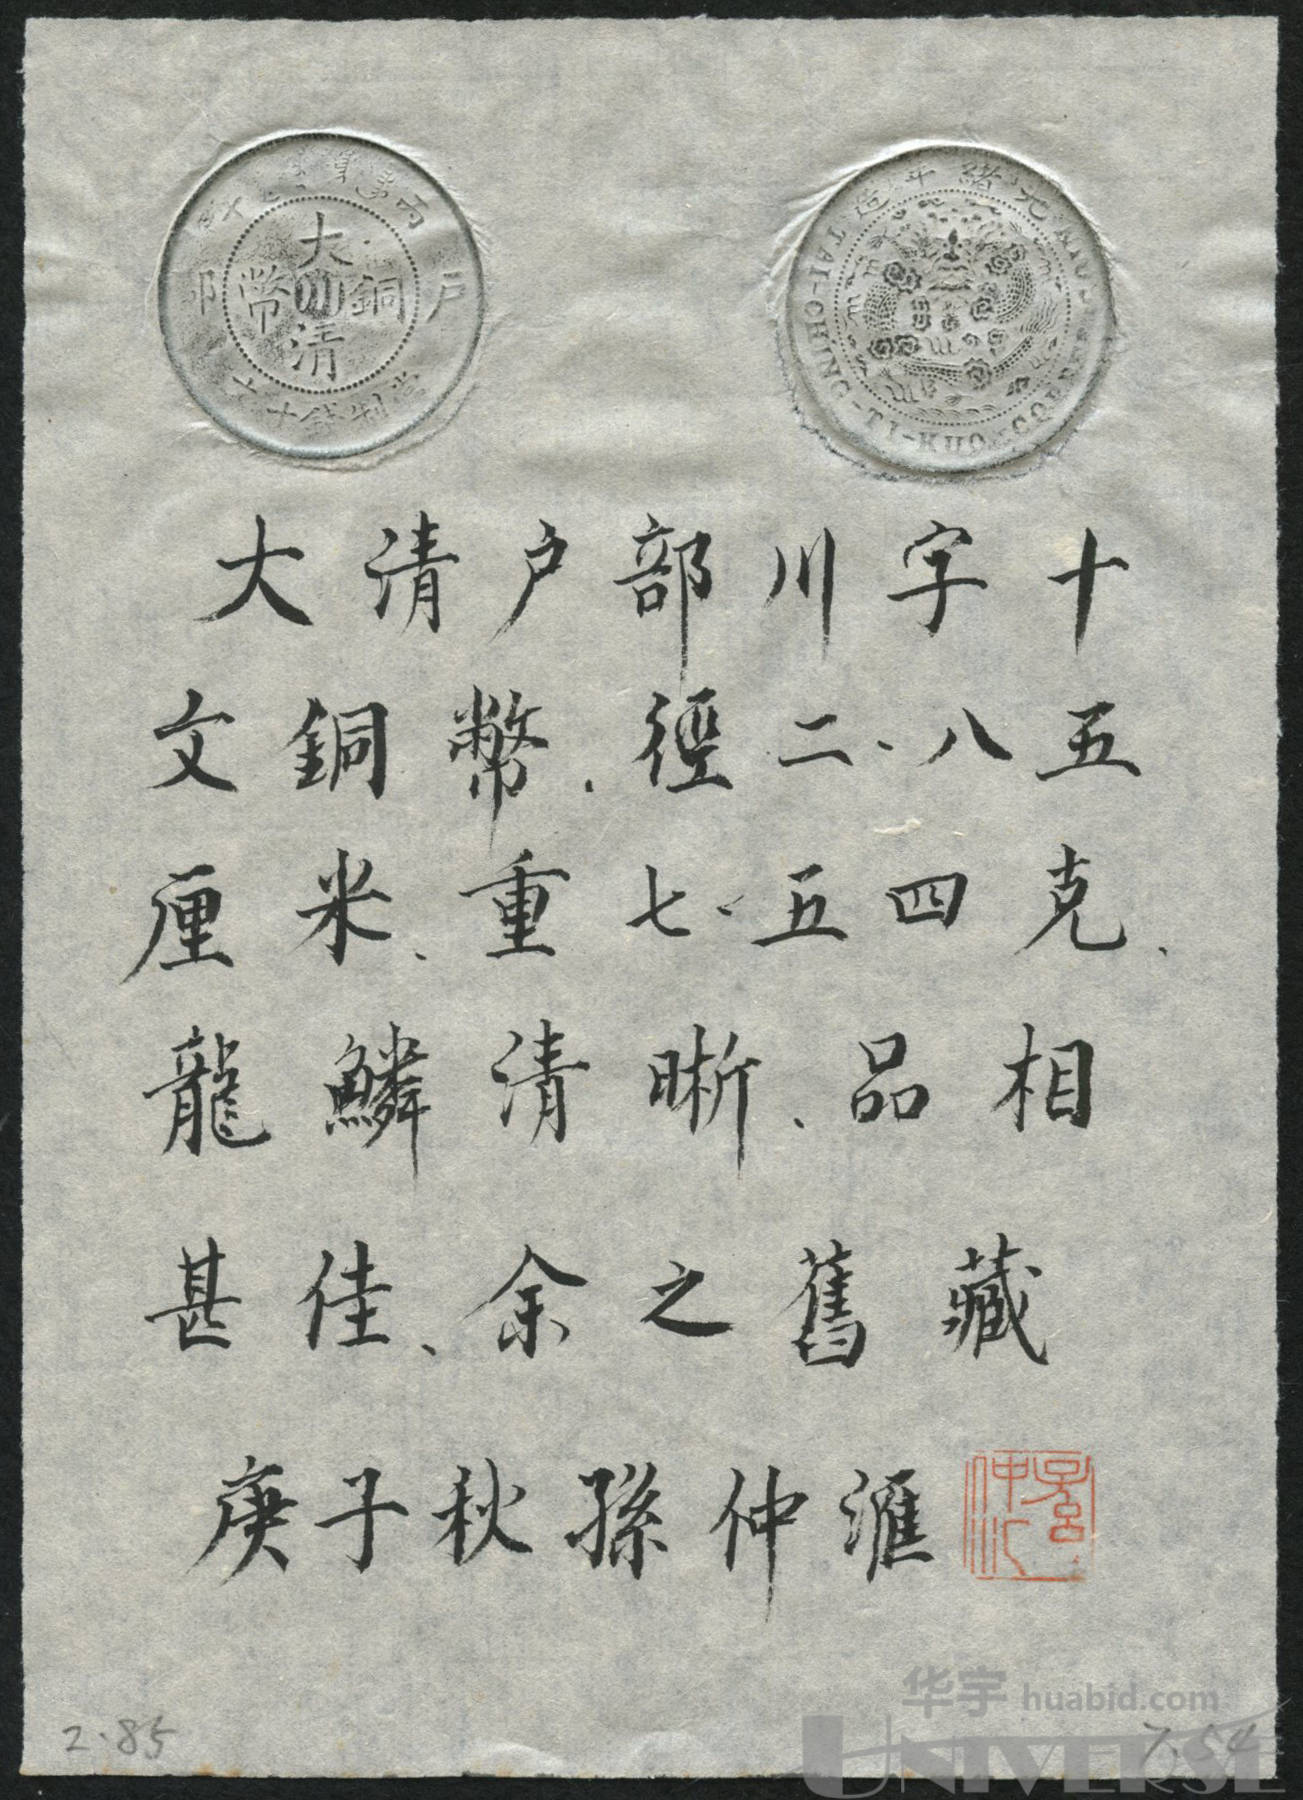 大清
銅幣
川
戶部
丙午
當制錢十文
光緒年造
TAI-CHING-TI-KUO COPPER
大清户部川字十
文銅幣、徑二·八五
厘米、重七·五四克、
龍鱗清晰、品相
甚佳、余之舊藏
庚子秋孫仲滙
2.85
7.54
华宇 huabid.com
UNIVERSE